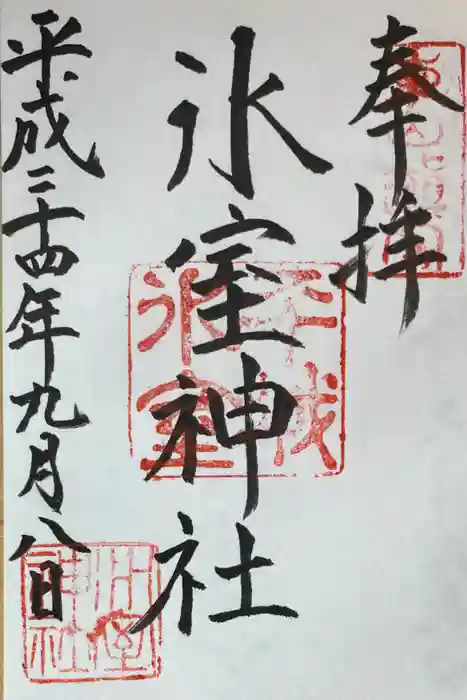 奉拝
氷室神社
平成二十四年九月八日
氷室
神社